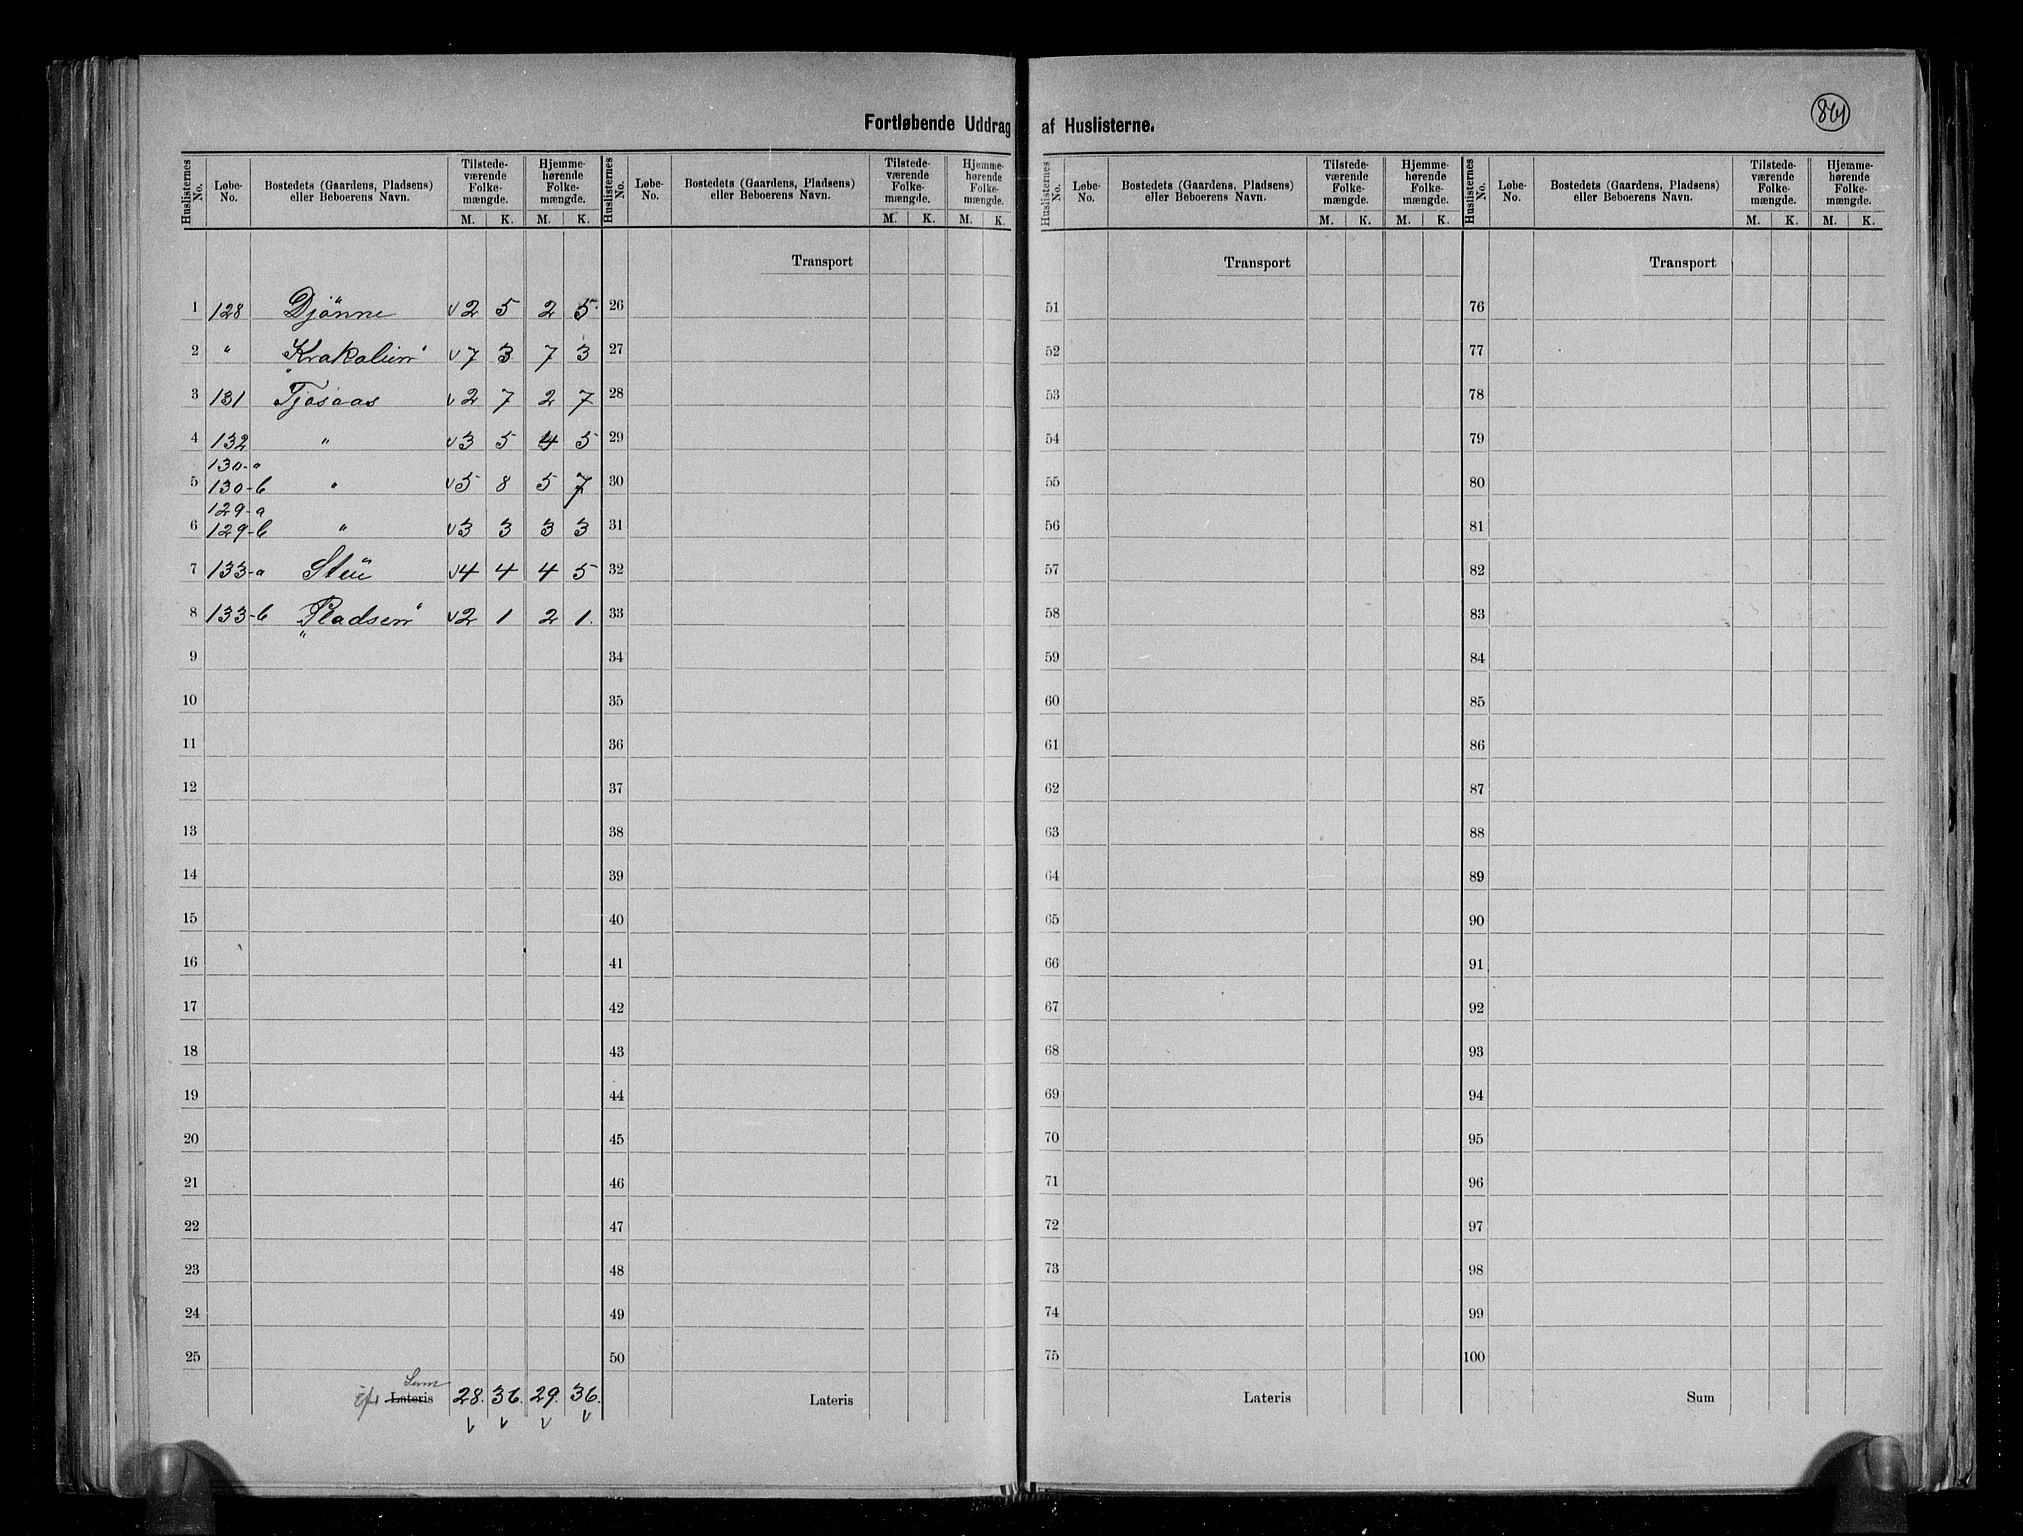 861
Fortløbende Uddrag af Huslisterne.
Huslisternes No. Løbe-No. Bostedets (Gaardens, Pladsens) eller Beboerens Navn. Tilstedeværende Folkemængde. M. K. Hjemmehørende Folkemængde. M. K.
Huslisternes No. Løbe-No. Bostedets (Gaardens, Pladsens) eller Beboerens Navn. Tilstedeværende Folkemængde. M. K. Hjemmehørende Folkemængde. M. K.
Huslisternes No. Løbe-No. Bostedets (Gaardens, Pladsens) eller Beboerens Navn. Tilstedeværende Folkemængde. M. K. Hjemmehørende Folkemængde. M. K.
Huslisternes No. Løbe-No. Bostedets (Gaardens, Pladsens) eller Beboerens Navn. Tilstedeværende Folkemængde. M. K. Hjemmehørende Folkemængde. M. K.
Transport Transport Transport
1 128 Djönne v2 5 2 5 26 51 76
2 " "Krakalien" v7 3 7 3 27 52 77
3 131 Tjosaas v2 7 2 7 28 53 78
4 132 " v3 5 4 5 29 54 79
130-a
5 130-b " v5 8 5 7 30 55 80
129-a
6 129-b " v3 3 3 3 31 56 81
7 133-a Steie v4 4 4 5 32 57 82
8 133-b "Pladsen" v2 1 2 1. 33 58 83
9 34 59 84
10 35 60 85
11 36 61 86
12 37 62 87
13 38 63 88
14 39 64 89
15 40 65 90
16 41 66 91
17 42 67 92
18 43 68 93
19 44 69 94
20 45 70 95
21 46 71 96
22 47 72 97
23 48 73 98
24 49 74 99
25 50 75 100
Sum
Lateris 28. 36. 29. 36. Lateris Lateris Sum
v v v v